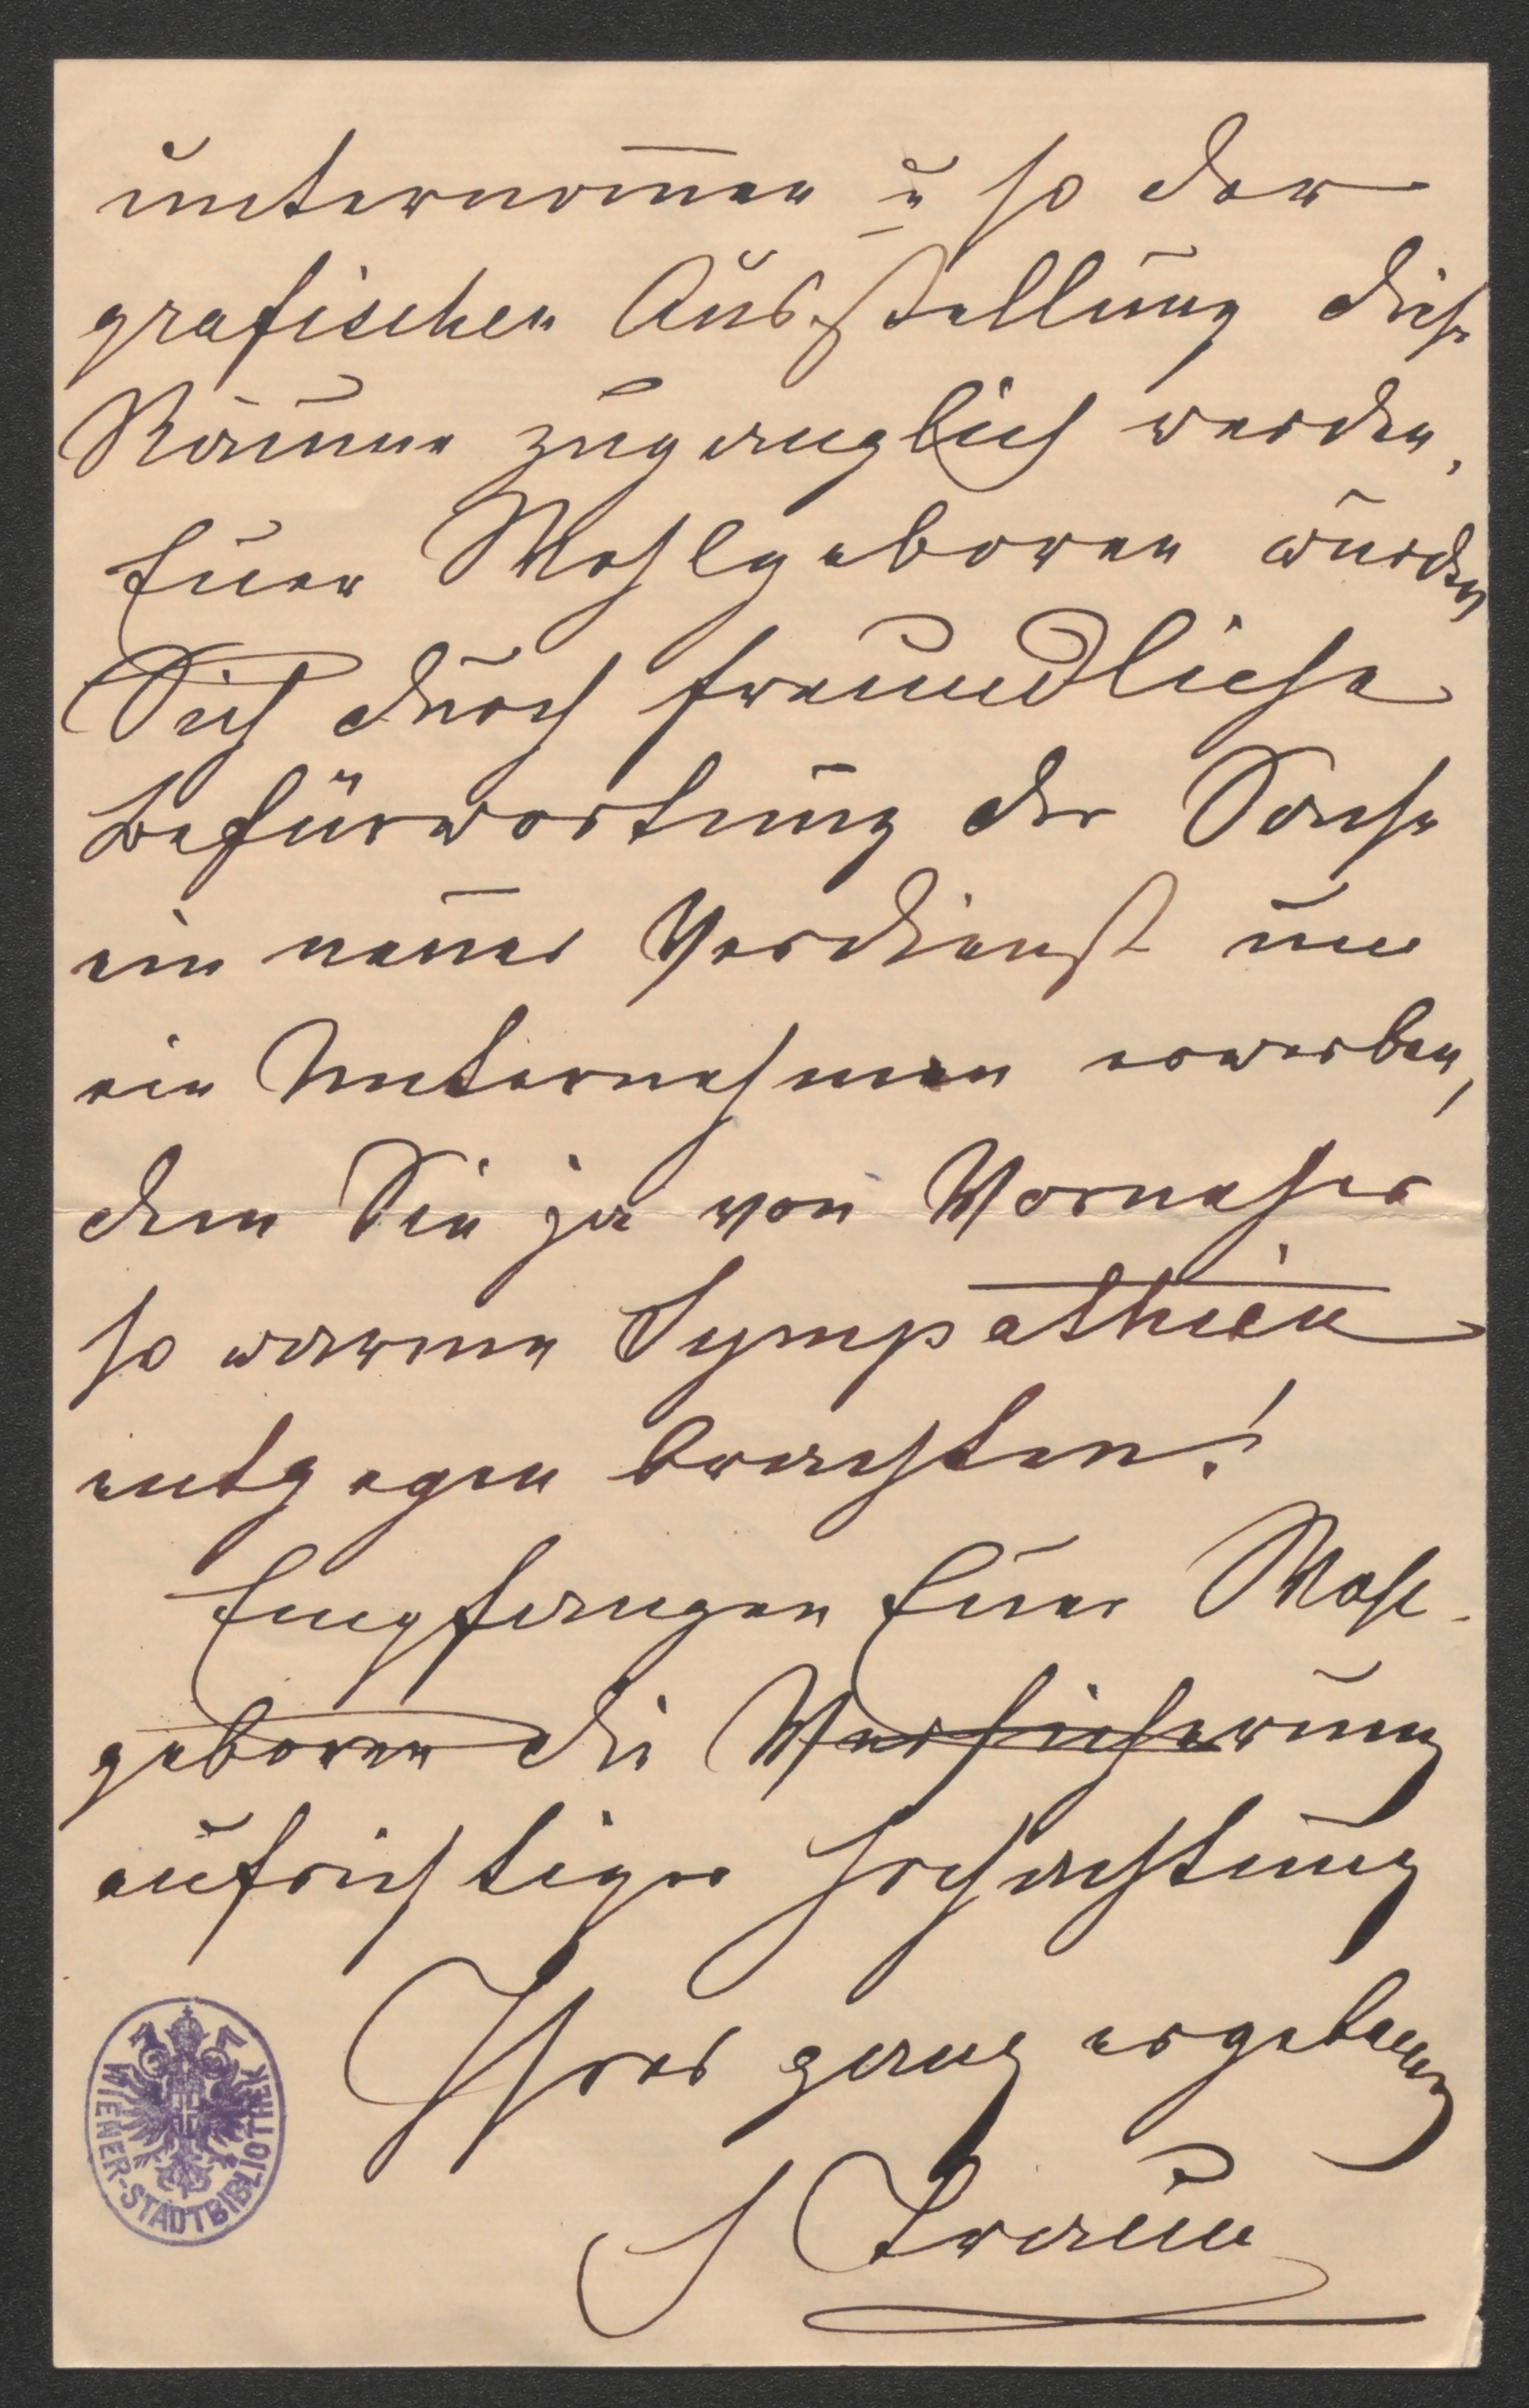 unternom̄en u so der
grafischen Ausstellung diese
Räume zugänglich werden.
Euer Wohlgeboren würden
Sich durch freundliche
Befürwortung der Sache
ein neues Verdienst um
ein Unternehmen erwerben,
dem Sie ja von Vornherein
so warme Sympathien
entgegen brachten!
Empfangen Euer Wohl-
geboren die Versicherung
aufrichtiger Hochachtung
Ihres ganz ergebenen
WIENER-STADTBIBLIOTHEK